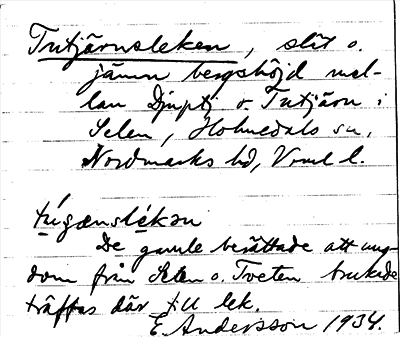 Tutjärnsleken, slät o.
jämn bergshöjd mel-
lan Djuptj o. Tutjärn i
Selen, Holmedals sn,
Nordmarks hd, Vrml l.
De gamle berättade att ung-
dom från Selen o. Tveten brukade
träffas där till lek.
E Andersson 1934.